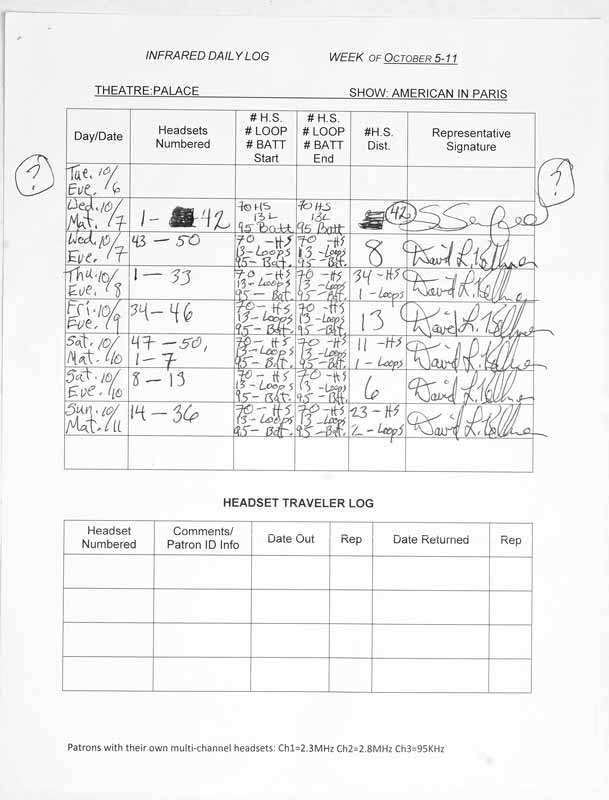 INFRARED DAILY LOG WEEK OF OCTOBER 5-11
THEATRE:PALACE SHOW: AMERICAN IN PARIS
Day/Date
Headsets
Numbered
# H.S.
# LOOP
# BATT
Start
# H.S.
# LOOP
# BATT
End
#H.S.
Dist.
Representative
Signature
?
Tue. 10/
Eve. 6
?
Wed. 10/
Mat. 7
1 - 42
70 HS
13 L
95 Batt
70 HS
13 L
95 Batt
42
Wed. 10/
Eve. 7
43 - 50
70 - HS
13 - Loops
95 - Bat.
70 - HS
13 - Loops
95 - Bat.
8
David L. Kollmer
Thu. 10/
Eve. 8
1 - 33
70 - HS
13 - Loops
95 - Bat.
70 - HS
13 - Loops
95 - Bat.
34 - HS
1 - Loops
David L. Kollmer
Fri. 10/
Eve. 9
34 - 46
70 - HS
13 - Loops
95 - Bat.
70 - HS
13 - Loops
95 - Bat.
13
David L. Kollmer
Sat. 10/
Mat. 10
47 - 50,
1 - 7
70 - HS
13 - Loops
95 - Bat.
70 - HS
13 - Loops
95 - Bat.
11 - HS
1 - Loops
David L. Kollmer
Sat. 10/
Eve. 10
8 - 13
70 - HS
13 - Loops
95 - Bat.
70 - HS
13 - Loops
95 - Bat.
6
David L. Kollmer
Sun. 10/
Mat. 11
14 - 36
70 - HS
13 - Loops
95 - Bat.
70 - HS
13 - Loops
95 - Bat.
23 - HS
2 - Loops
David L. Kollmer
HEADSET TRAVELER LOG
Headset
Numbered
Comments/
Patron ID Info
Date Out
Rep
Date Returned
Rep
Patrons with their own multi-channel headsets: Ch1=2.3MHz Ch2=2.8MHz Ch3=95KHz